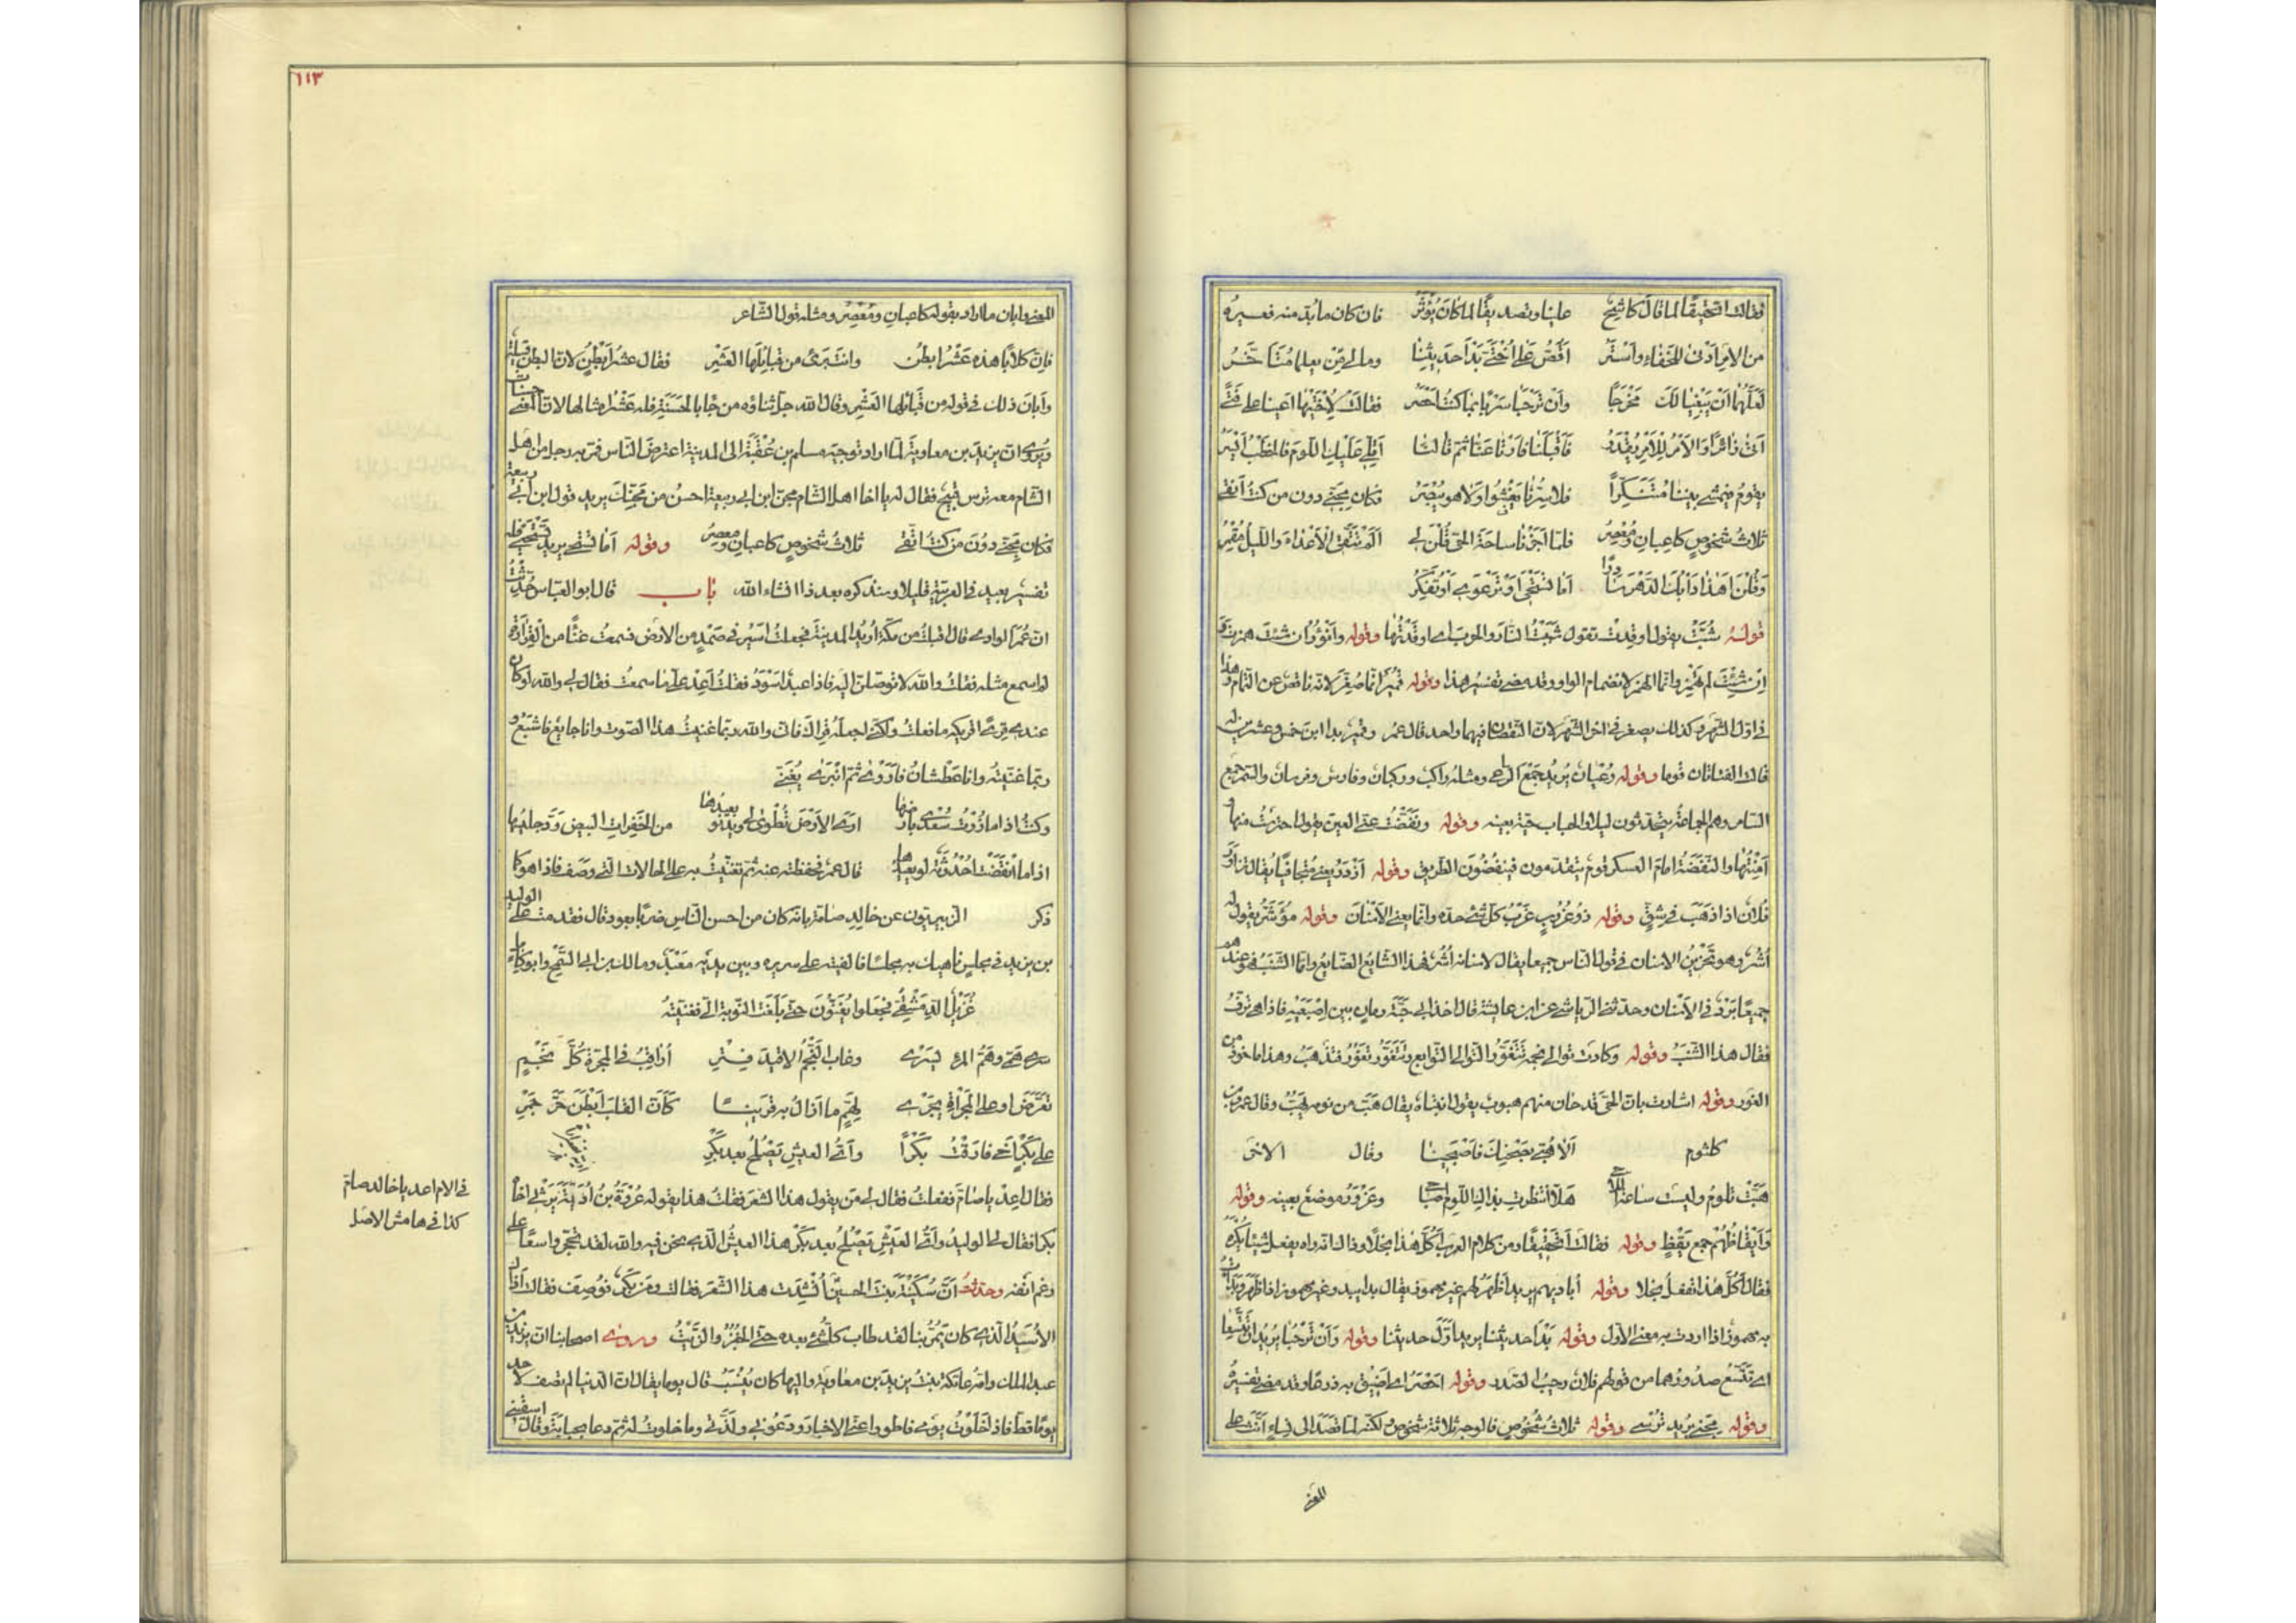 فقالت اتحقيقا لما قال كاشح علينا وتصديقا لما كان يؤثر فان كان ما لا بد منه فغيره
من الامر ادنى للخفاء واستر اقص على اختي بدا حديثنا وما لي من يعلما متاخر
لعلهما ان يبغيا لك مخرجا وان ترحبا سربا بما كنت احصر فقالت لاختيها اعينا على فتى
اتى زائرا والامر للامر يقدر فاقبلتا فارتاعتا ثم قالتا اقلي عليك اللوم فالخطب ايسر
يقوم فيمشي بيننا متنكرا فلا سرنا يفشوا ولا هو يبصر فكان مجني دون من كنت اتقي
ثلاث شخوص كاعبان ومعصر فلما اجزنا ساحة الحي قلن لي الم تتق الاعداء والليل مقمر
وقلن اهذا دأبك الدهر سادرا اما تستحي او ترعوي او تفكر
قوله شبت يقول اوقدت تقول شببت النار والحرب اي اوقدتها وقوله وانؤر ان شئت همزت
ان شئت لم تهمز وانما الهمز لانضمام الواو وقد مضى تفسير هذا وقوله قمير انما صغره لانه ناقص عن التمام وهذا
في اول الشهر وكذلك يصغر في اخر الشهر لان النقصان فيهما واحد قال عمر وقمير بدا ابن خمس وعشرين له
قالت الفتاتان قوما وقوله رعيان يريد جمع الراعي ومثله راكب وركبان وفارس وفرسان والسمر جمع
السامر وهم الجماعة يتحدثون ليلا والحباب حية بعينه وقوله ونفضت عني العين يقول احترست منها و
امنتها والنفضة امام العسكر قوم يتقدمون فينفضون الطريق وقوله ازور يعني متجافيا يقال تزاور
فلان اذا ذهب في شق وقوله ذو غروب غرب كل شيء حده وانما يعني الاسنان وقوله مؤشر يقول له
اشر وهو تحزين الاسنان في قول الناس جميعا يقال لاسنانه اشر فهذا الشايع الضايع واما الشنب فهو عندهم
جميعا برد في الاسنان وحدثني الرياشي عن ابن عايشة قال اخذ ابي حبة رمان بين اصبعيه فاذا هي ترف
فقال هذا الشنب وقوله وكادت توالي نجمه تتغور التوالي التوابع وتتغور تغور فتذهب وهذا ماخوذ من
الغور وقوله اشارت بان الحي قد حان منهم هبوب يقول انتباه يقال هب من نومه يهب وقال عمرو بن
كلثوم الا هبي بصحنك فاصبحينا وقال الاخر
هبت تلوم وليست ساعة اللاحي هلا انتظرت بهذا اللوم اصباحي وعزور موضع بعينه وقوله
وايقاظهم جمع يقظ وقوله فقالت اتحقيقا ومن كلام العرب اكل هذا بخلا وذا انه راه يفعل شيئا يكره
فقال اكل هذا تفعل بخلا وقوله اباديهم يريد اظهر لهم غير مهموز يقال بدا يبدو غير مهموز اذا ظهر وبدات
به مهموز اذا اردت به معنى الاول وقوله بدا حديثنا يريد اول حديثنا وقوله وان ترحبا يريد ان تتسعا
اي تتسع صدورهما من قولهم فلان رحب الصدر وقوله احصر اي اضيق به ذرعا وقد مضى تفسيره
وقوله مجني يريد ترسي وقوله ثلاث شخوص فالوجه ثلاثة شخوص لكنه لما قصد الى نساء انث على
المعنى
١١٣
المعنى وابان ما اراد بقوله كاعبان ومعصر ومثله قول الشاعر
فان كلابا هذه عشر ابطن وانت بريء من قبائلها العشر فقال عشر ابطن لان البطن قبيلة
وابان ذلك في قوله من قبائلها العشر وقال الله جل ثناؤه من جا بالحسنة فله عشر امثالها لان المعنى حسنات
ويروى ان يزيد بن معاوية لما اراد توجيه مسلم بن عقبة الى المدينة اعترض الناس فمر به رجل من اهل
الشام معه ترس قبيح فقال له يا اخا اهل الشام مجن ابن ابي ربيعة احسن من مجنك يريد قول ابن ابي ربيعة
فكان مجني دون من كنت اتقي ثلاث شخوص كاعبان ومعصر وقوله اما تستحي يريد تستحيي فله
تفسير بعيد في العربية قليلا وسنذكره بعد ذا انشاء الله باب قال ابو العباس حدثت
ان عمر الوادي قال اقبلت من مكة اريد المدينة فجعلت اسير في صمد من الارض فسمعت غناء من القرارة
لم اسمع مثله فقلت والله لاتوصلن اليه فاذا عبد اسود فقلت اعد علي ما سمعت فقال لي والله لو كان
عندي قرى اقريكه ما فعلت ولكني اجعله قراك فاني والله ربما غنيت هذا الصوت وانا جايع فاشبع و
ربما غنيته وانا عطشان فاروى ثم انبرى يغني
وكنت اذا ما زرت سعدى بارضها ارى الارض تطوى لي ويدنو بعيدها من الخفرات البيض ود جليسها
اذا ما انقضت احدوثة لو يعيدها قال عمر فحفظته عنه ثم تغنيت به على الحالات التي وصف فاذا هو كما
ذكر الزبيريون عن خالد صامة بانه كان من احسن الناس ضربا بعود قال فقدمت على الوليد
بن يزيد في مجلس ناهيك به مجلسا فالفيته على سريره وبين يديه معبد ومالك بن ابي السمح وابو كامل
غزيل الدمشقي فجعلوا يغنون حتى بلغت النوبة الي فغنيته
سرى همي وهم المرء يسري وغاب النجم الا قيد فتر اراقب في المجرة كل نجم
تعرض او على المجراة يجري لهم ما ازال به قرينا كان القلب ابطن حر جمر
على بكر اخي فارقت بكرا واي العيش يصلح بعد بكر
فقال اعد يا صام ففعلت فقال لي من يقول هذا الشعر فقلت هذا يقوله عروة بن اذينة يرثي اخاه
بكرا فقال لي الوليد واي العيش يصلح بعد بكر هذا العيش الذي نحن فيه والله لقد تحجر واسعا على
رغم انفه وحدثت ان سكينة بنت الحسين انشدت هذا الشعر فقالت ومن بكر فوصف فقالت اذاك
الاسيد الذي كان يمر بنا لقد طاب كل شيء بعده حتى الخبز والزيت وروى اصحابنا ان يزيد بن
عبد الملك وامه عاتكة بنت يزيد بن معاوية واليها كان ينسب قال يوما يقال ان الدنيا لم تصف لاحد
يوما قط فاذا خلوت يومي فاطووا عني الاخبار ودعوني ولذتي وما خلوت له ثم دعا بحبابة وقال اسقيني
في الام اعد يا خالد صامة
كذا في هامش الاصل